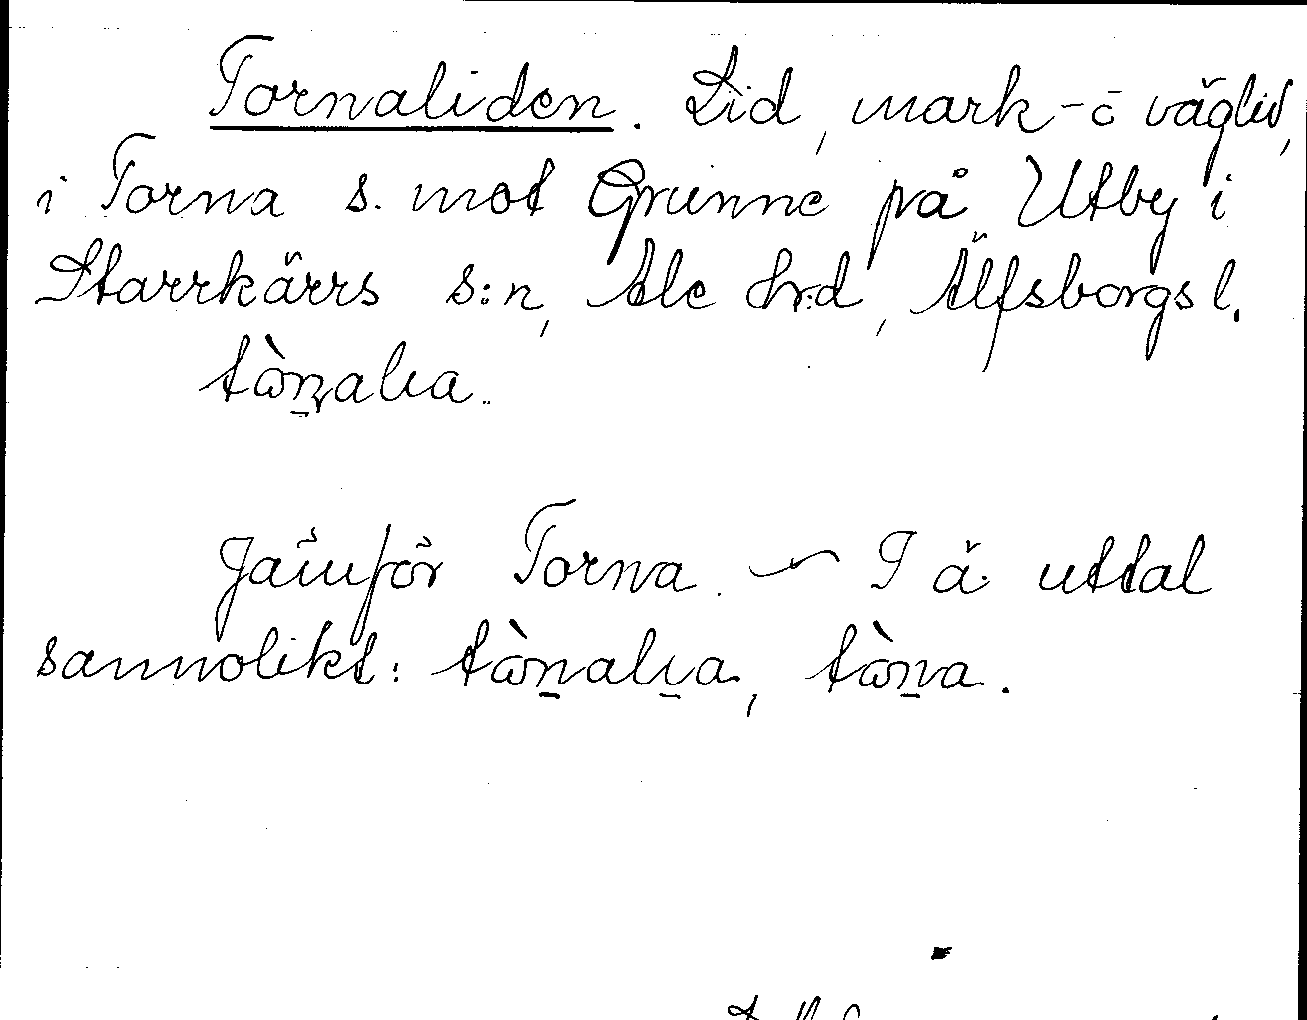 Tornaliden. Lid, mark- o väglid,
i Torna s. mot Grunne på Utby i
Starrkärrs s:n, Ale hrd, Älfsborgs l.
tὼn̲alιa.
Jämför Torna. — I ä. uttal
sannolikt: tὼn̲alι̲a, tὼn̲a.